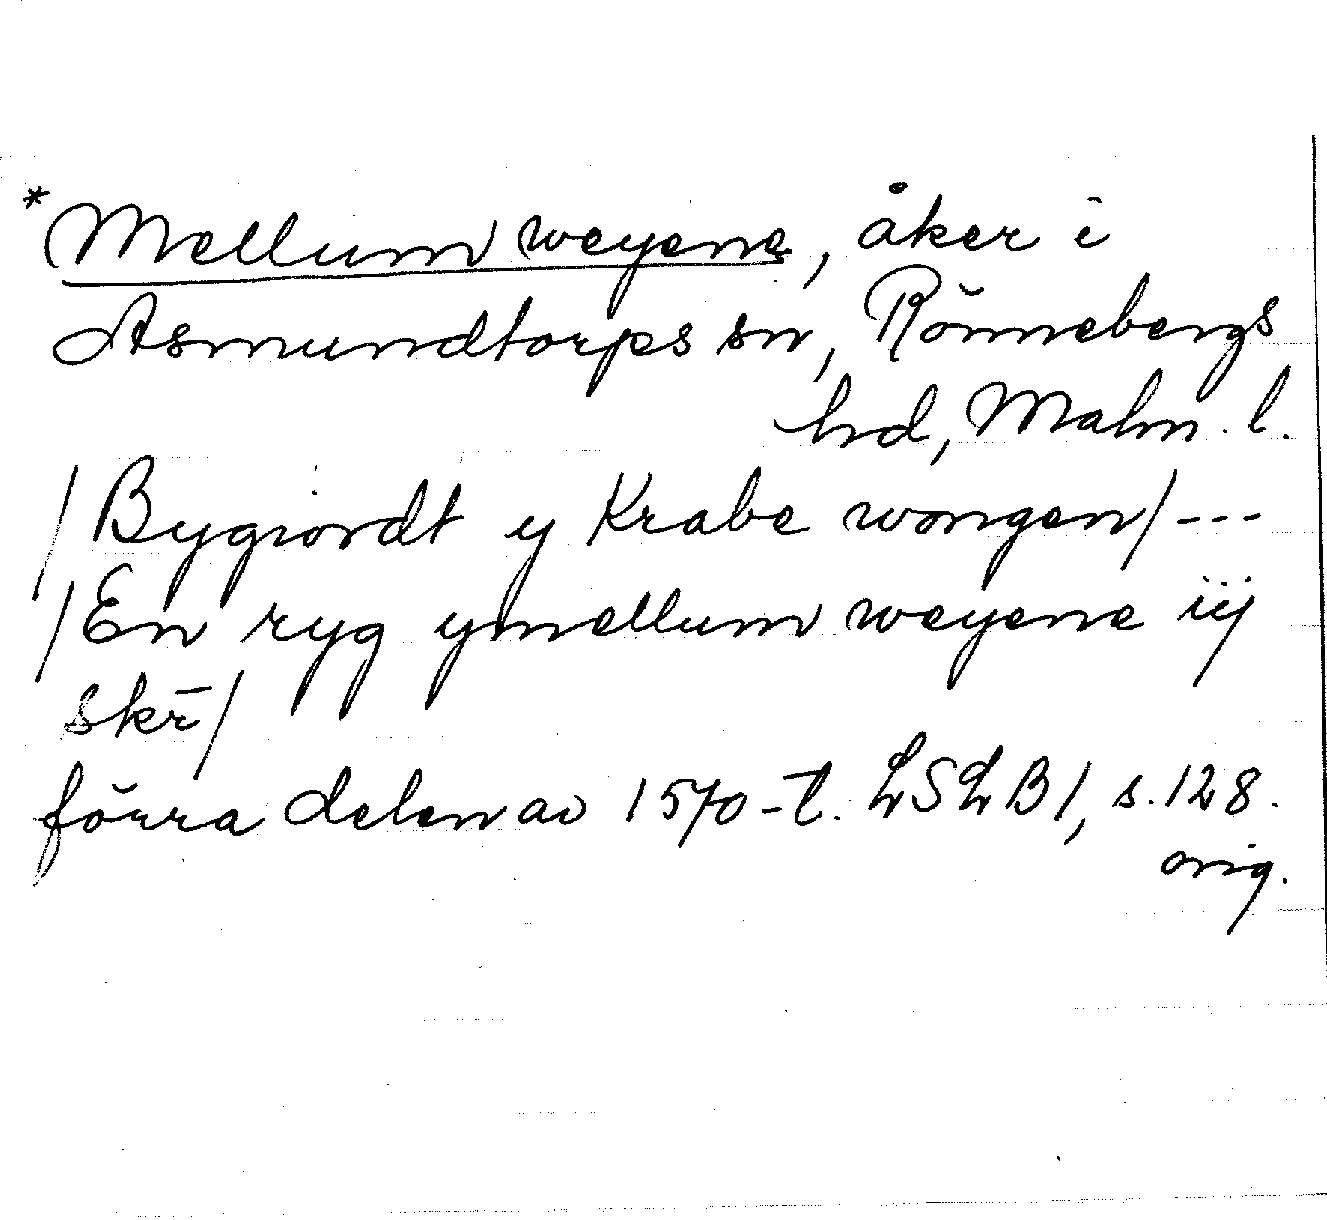 *Mellum weyene, åker i
Asmundtorps sn, Rönnebergs
hd, Malm. l.
/Bygiordt y Krabe wongen/---
/En ryg ymellum weyene iij
skr̄/
förra delen av 1570-t. LSLB1, s.128.
orig.